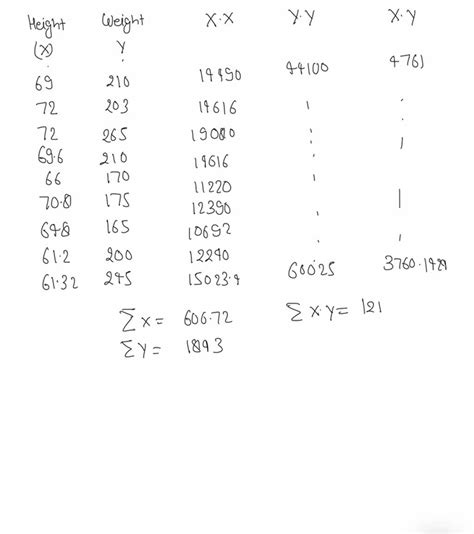 Height Weight X.X Y.Y X.Y
(X) Y
69 210 14490 44100 4761
72 203 14616
72 265 19080
69.6 210 14616
66 170 11220
70.8 175 12390
64.8 165 10692
61.2 200 12240
61.32 245 15023.4 60025 3760.1424
∑X = 606.72 ∑X.Y = 121
∑Y = 1843